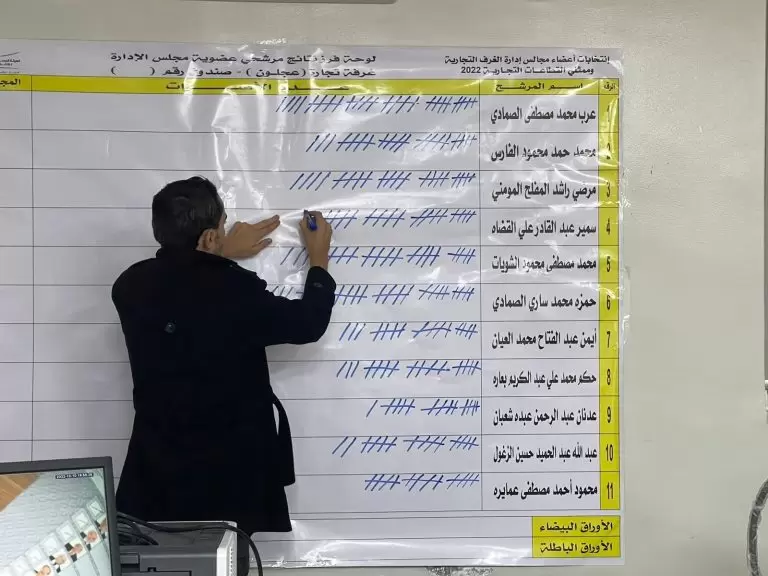 إنتخابات أعضاء مجالس إدارة الغرف التجارية
وممثلي القطاعات التجارية 2022
لوحة فرز نتائج مرشحي عضوية مجلس الإدارة
غرفة تجارة (عجلون) - صندوق رقم ( )
الرقم اسم المرشح عدد الأصوات
1 عرب محمد مصطفى الصمادي
2 محمد حمد محمود الفارس
3 مرضي راشد المفلح المومني
4 سمير عبد القادر علي القضاه
5 محمد مصطفى محمود الشويات
6 حمزه محمد ساري الصمادي
7 أيمن عبد الفتاح محمد العيان
8 حكم محمد علي عبد الكريم بعاره
9 عدنان عبد الرحمن عبده شعبان
10 عبد الله عبد الحميد حسين الزغول
11 محمود أحمد مصطفى عمايره
الأوراق البيضاء
الأوراق الباطلة